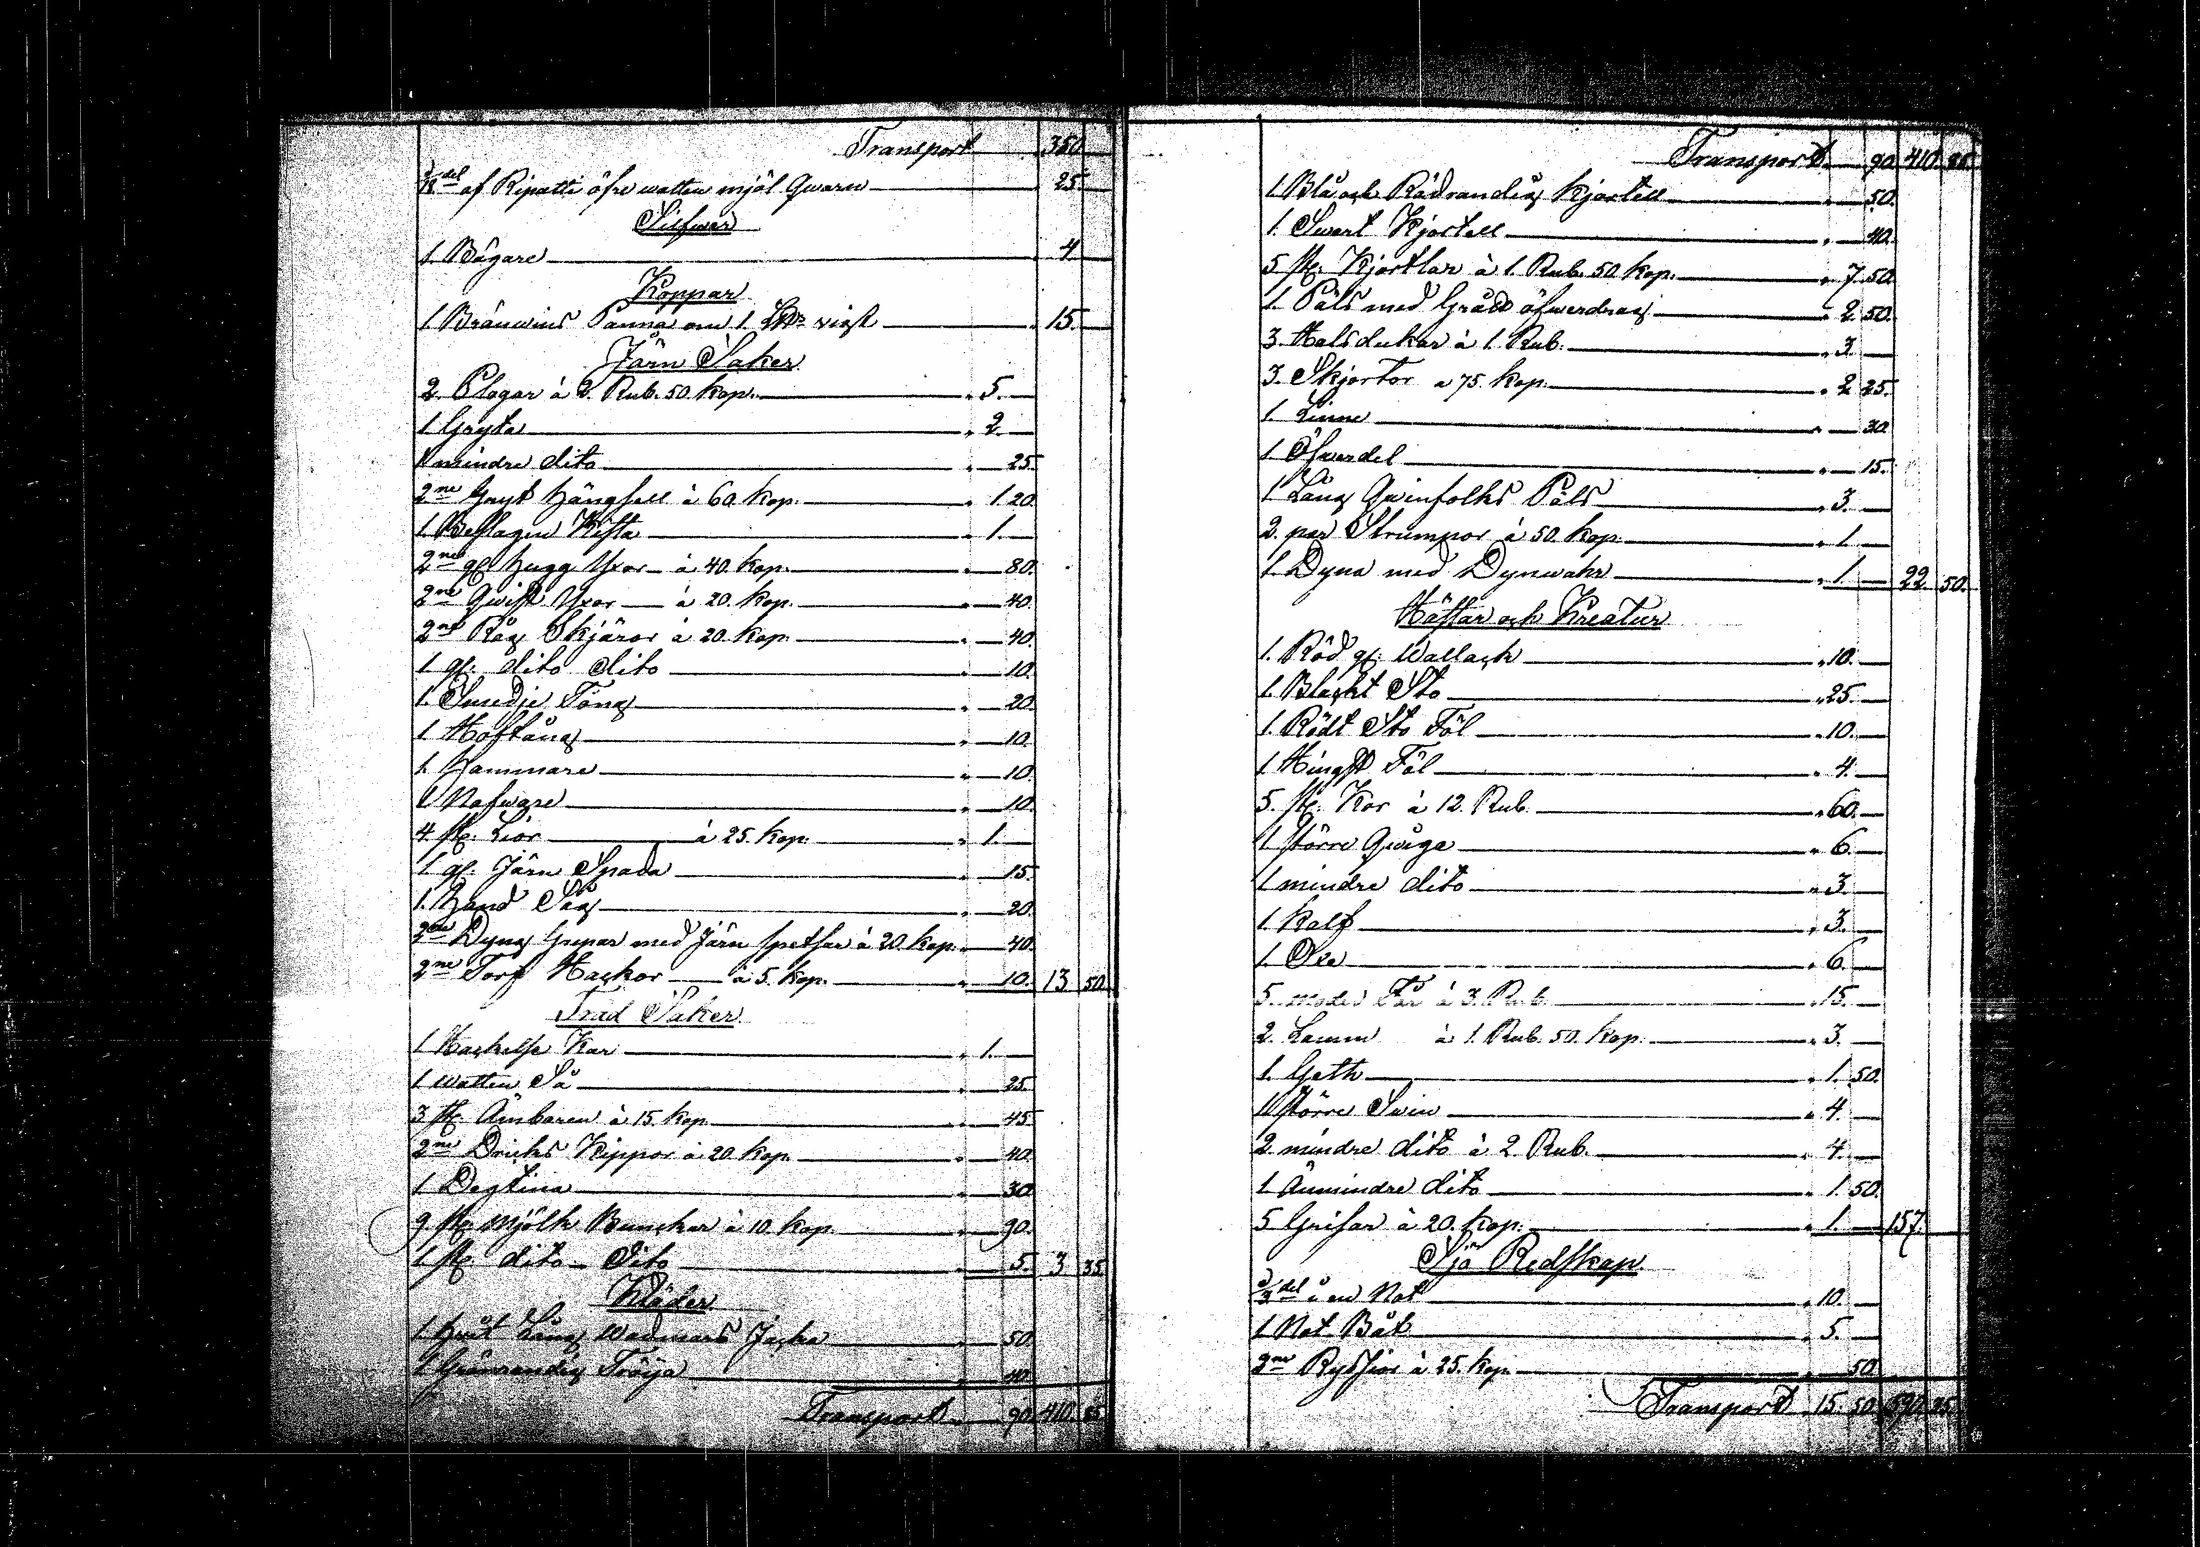 Transport 350
del af Ripatti öfre watten mjöl Qwarn 25
Silfwer
1. Bägare 4
Koppar
1 Bränwins Panna om 1 L℔ wigt 15.
Järn Saker
2. Plogar à 2. Rub. 50 kop. 5.
1 Gryta 2.
1 mindre dito 25
2ne Gryt Hängsell à 60 kop. 1 20
1 Beslagen Kista 1.
2ne gl. Hugg Yxor à 40. kop. 80.
2ne Qwist Yxor à 20. kop. 40
2ne Råg Skjäror à 20. kop. 40.
1 gl. dito dito 10.
1. Smedje Tång 20.
1 Hoftång 10.
1. Hammare 10
1 Nafware 10
4 st. Liör à 25. kop. 1.
1 gl. Järn Spada 15.
1. Hand Såg 20.
2ne Dyng Grepar med Järn spetsar à 20. kop. 40.
2ne Torf Hackor à 5. kop. 10. 13 50
Träd Saker
1 Hackelse Kar 1.
1 Watten Så 25.
3 st. Ämbaren à 15. kop 45
2ne Dricks Kippor à 20. kop. 40.
1 Degtina 30
9 st. Mjölk Bunckar à 10. kop. 90.
1 st. dito dito 5. 3 35
Kläder
1 Hwit Lång Wadmars Jacka 50
1 Grönrandig Tröija 40
Transport 90 410. 85
Transport 90. 410. 85
1. Blå och Rödrandig Kjortell 50.
1. Swart Kjortell 40.
5 st. Kjortlar à 1. Rub. 50 kop. 7 50
1. Päls med Grått öfwerdrag 2 50.
3. Halsdukar à 1. Rub. 3.
3. Skjortor a 75. kop. 2 25.
1. Linne 30
1 Öfwerdel 15.
1 Lång Qwinfolks Päls 3.
2. par Strumpor à 50. kop. 1.
1. Dyna med Dynwahr 1. 22 50.
Hästar och Kreatur
1. Röd gl. Wallach 10.
1. Blackt Sto 25
1. Rödt Sto Föl 10.
1 Hingst Föl 4.
5. st. Kor à 12. Rub. 60.
1 större Qwiga 6.
1 mindre dito 3.
1 Kalf 3.
1. Oxe 6.
5. moder Får à 3. Rub. 15.
2. Lamm à 1. Rub. 50. kop. 3.
1. Geth 1. 50.
1 större Swin 4.
2. mindre dito à 2. Rub. 4.
1. Änmindre dito 1. 50.
5 Grisar à 20. kop. 1. 157.
Sjö Redskap
del i en Not 10.
1 Not Båt 5.
2ne Ryssjor à 25. kop. 50.
Transport 15. 50. 590. 35.